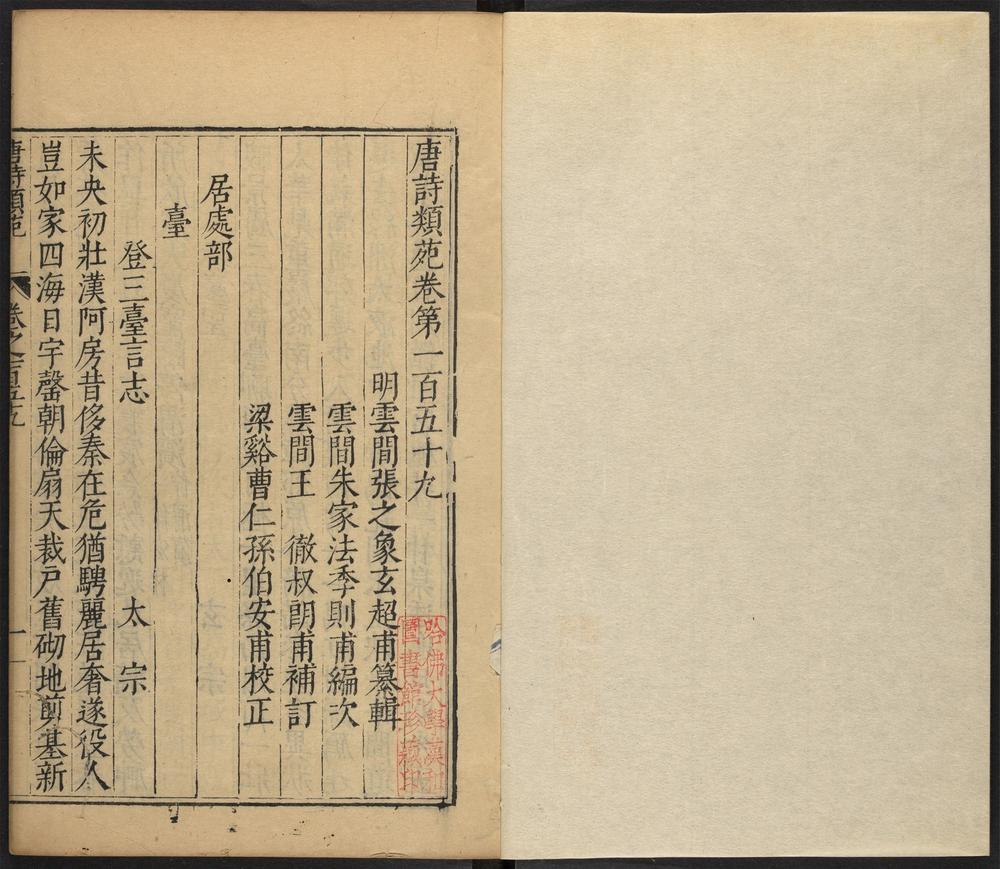 唐詩類苑卷第一百五十九
明雲間張之象玄超甫纂輯
雲間朱家法季則甫編次
雲間王　徹叔朗甫補訂
梁谿曹仁孫伯安甫校正
居處部
臺
登三臺言志　太宗
未央初壯漢阿房昔侈秦在危猶騁麗居奢遂役人
豈如家四海日宇罄朝倫扇天裁戶舊砌地翦基新
唐詩類苑　卷之一百五十九　一
哈佛大學漢和
圖書館珍藏印